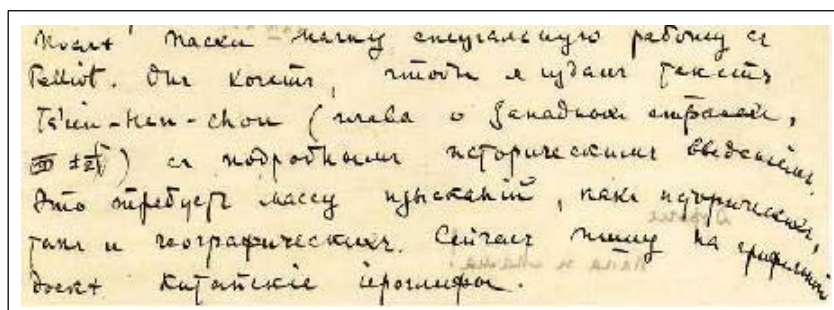 послѣ Пасхи начну спеціальную работу съ
Pelliot. Онъ хочетъ, чтобы я издалъ текстъ
Ts'ien-Han-chou (глава о Западныхъ странахъ,
西域) съ подробнымъ историческимъ введеніемъ.
Это требуетъ массу изысканій, какъ историческихъ,
такъ и географическихъ. Сейчасъ пишу на грифельной
доскѣ китайскіе іероглифы.